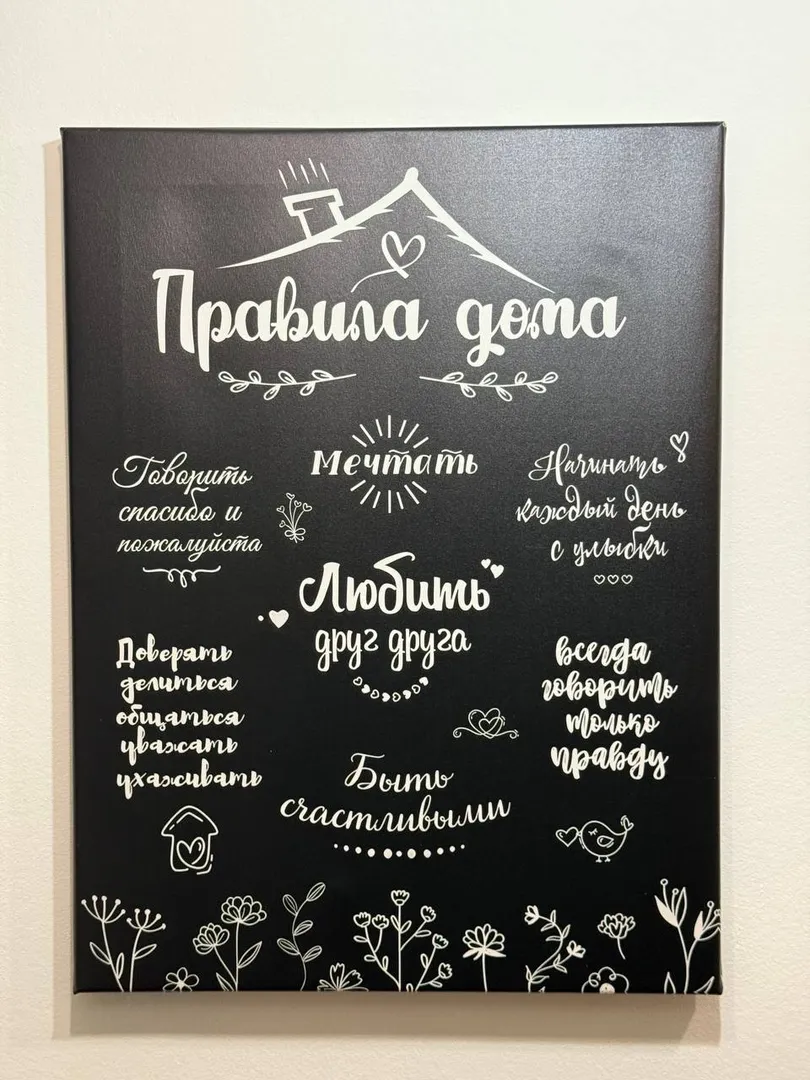 Правила дома
Говорить
спасибо и
пожалуйста
Мечтать
Начинать
каждый день
с улыбки
Любить
друг друга
Доверять
делиться
общаться
уважать
ухаживать
всегда
говорить
только
правду
Быть
счастливыми